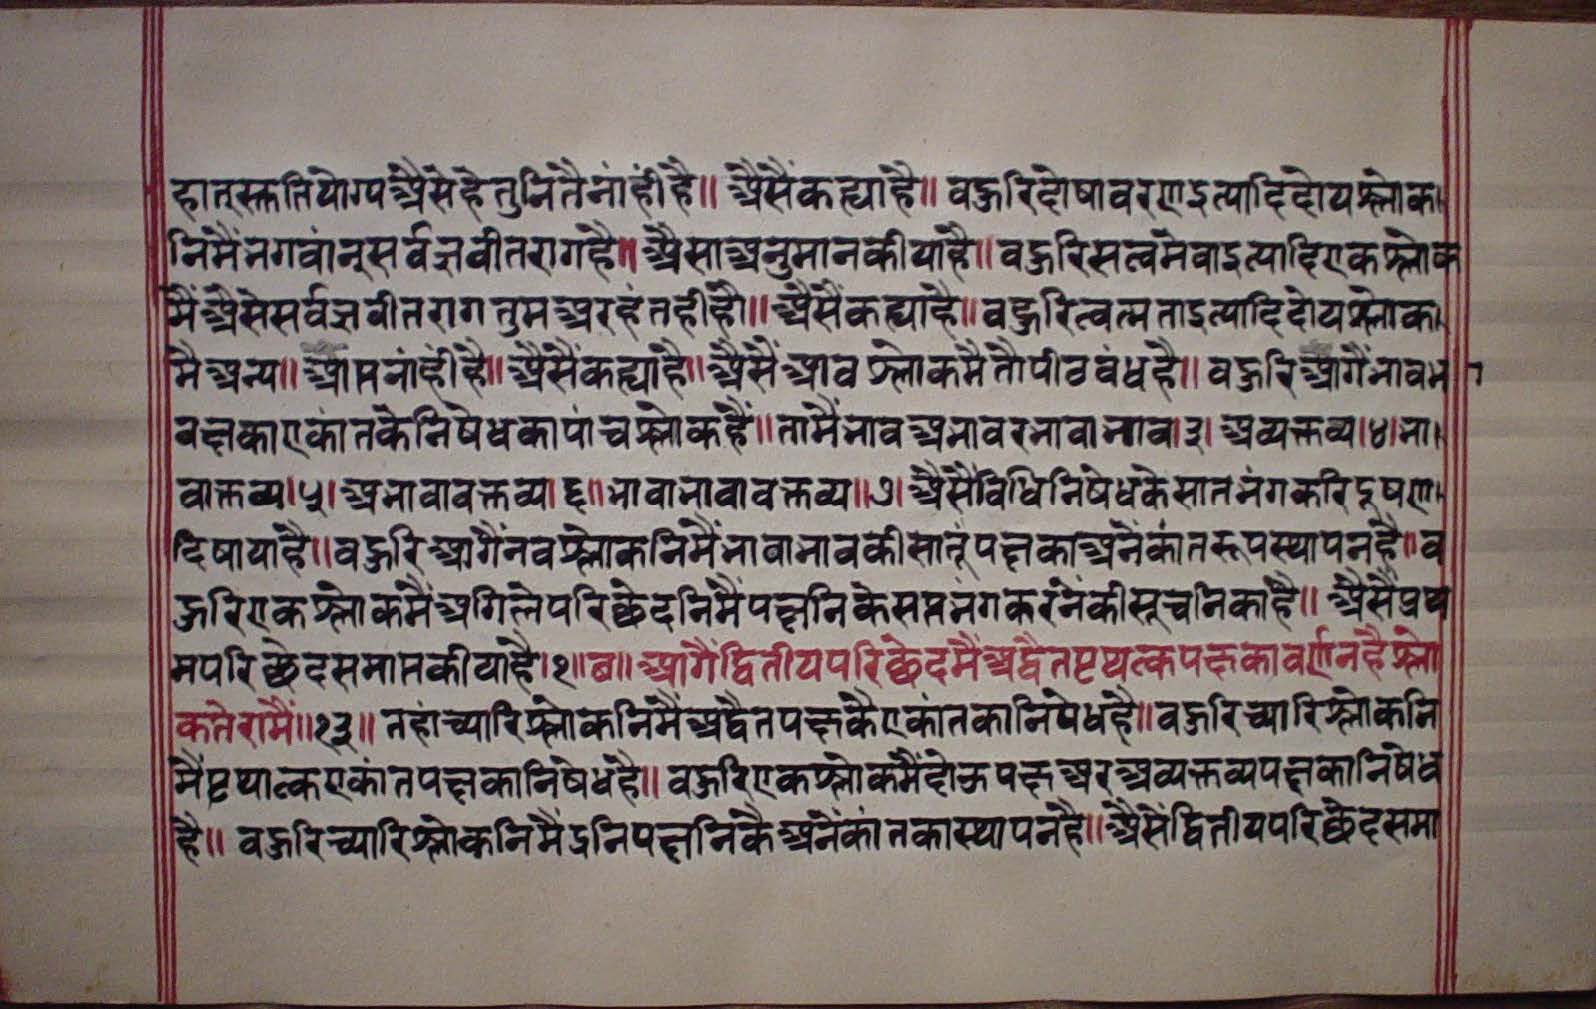 हात्स्तुतियोग्य अैसे हेतुनितै नांहीं है॥ अैसैं कह्या है॥ बहुरि दोषावरण इत्यादि दोय श्लोक।
निमैं भगवांन् सर्वज्ञ वीतराग है॥ अैसा अनुमान कीया है॥ बहुरि सत्वमेवा इत्यादि एक श्लोक
मैं अैसे सर्वज्ञ वीतराग तुम अरहंत ही हौ॥ अैसैं कह्या है॥ बहुरि त्वत्मता इत्यादि दोय श्लोक।
मै अन्य॥ आप्त नांहीं है॥ अैसैं कह्या है॥ अैसैं आठ श्लोकमै तौ पीठबंध है॥ बहुरि आगैं भावअभा
व पक्ष का एकांतके निषेधका पांच श्लोक हैं॥ तामैं भाव अभाव र भावाभाव।३। अव्यक्तव्य।४। भा।
वाक्तव्य।५। अभावावक्तव्य।६॥ भावाभावावक्तव्य॥७। अैसैं विधिनिषेधके सात भंगकरि दूषण।
दिषाया है॥ बहुरि आगैं नव श्लोकनिमैं भावाभावकी सातूं पक्षका अनेकांतरूप स्थापन है॥ ब
हुरि एक श्लोकमैं अगिले परिछेदनिमैं पक्षनिके सप्तभंग करनेंकी सूचनिका है॥ अैसैं प्रथ
म परिछेद समाप्त कीया है।१॥ब॥ आगैं द्वितीय परिछेदमैं अद्वैत पृथत्क पक्षका वर्णन है श्लो
क तेरामैं॥१३॥ तहां च्यारि श्लोकनिमैं अद्वैत पक्षकै एकांतका निषेध है॥ बहुरि च्यारि श्लोकनि
मैं पृथात्क एकांत पक्षका निषेध है॥ बहुरि एक श्लोकमैं दोऊ पक्ष अर अव्यक्तव्य पक्षका निषेध
है॥ बहुरि च्यारि श्लोकनिमैं इनि पक्षनिकै अनेकांतका स्थापन है॥ अैसैं द्वितीय परिछेद समा